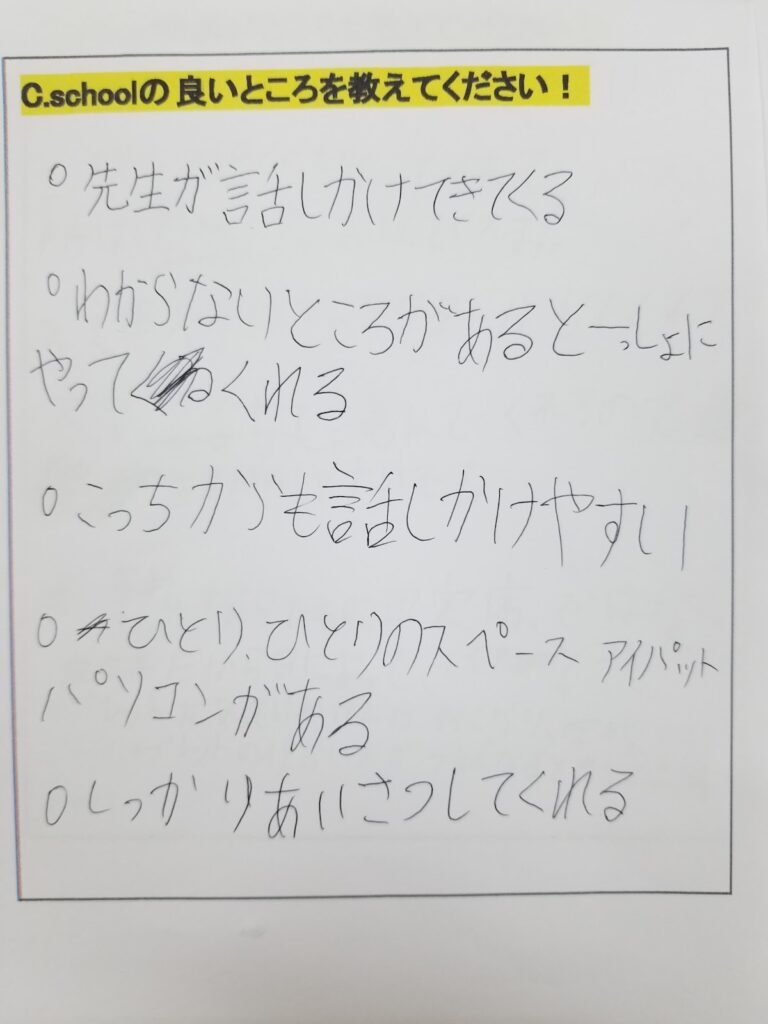 C.schoolの 良いところを教えてください！
○先生が話しかけてきてくる
○わからないところがあるといっしょに
やってくれる
○こっちからも話しかけやすい
○ひとり、ひとりのスペース アイパット
パソコンがある
○しっかりあいさつしてくれる